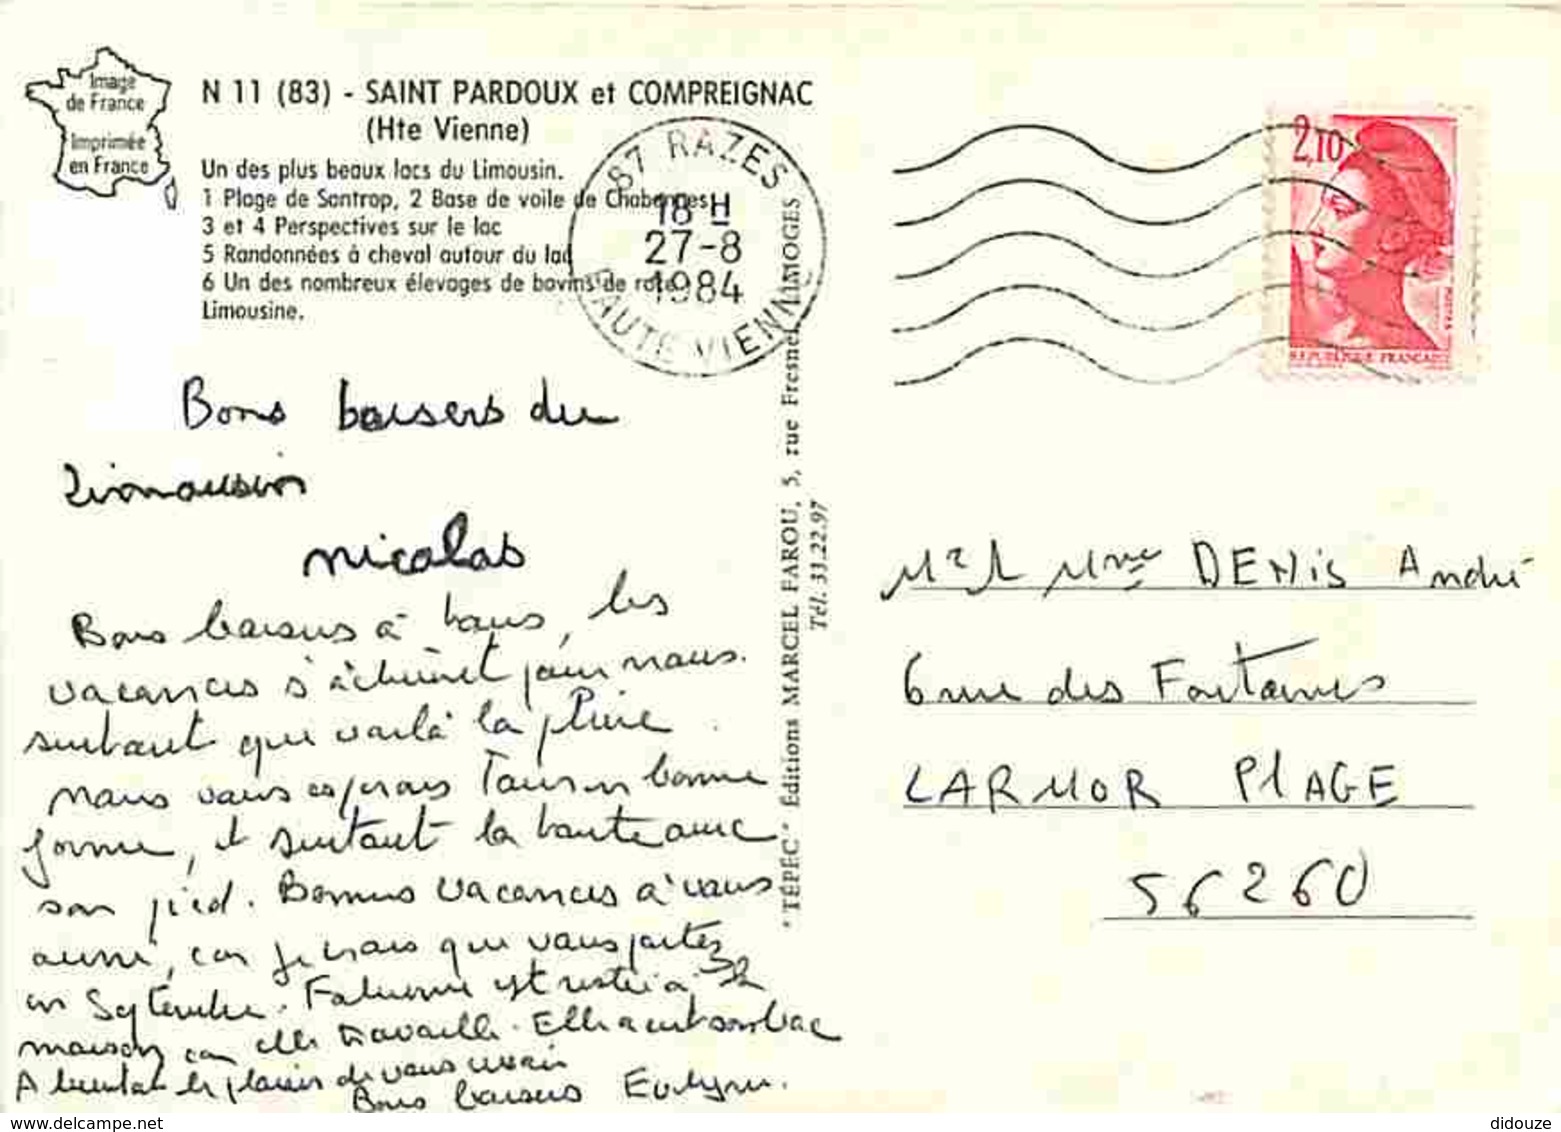 Image
de France
Imprimée
en France
N 11 (83) - SAINT PARDOUX et COMPREIGNAC
(Hte Vienne)
Un des plus beaux lacs du Limousin.
1 Plage de Santrop, 2 Base de voile de Chabannes
3 et 4 Perspectives sur le lac
5 Randonnées à cheval autour du lac
6 Un des nombreux élevages de bovins de race
Limousine.
87 RAZES
18 H
27-8
1984
HAUTE VIENNE
2,10
REPUBLIQUE FRANÇAISE
Bons baisers du
Limousin
nicolas
Bons baisers à tous, les
vacances s'achèvent pour nous.
surtout que voilà la pluie.
nous vous espérons Tous en bonne
forme, et surtout la tante avec
son pied. Bonnes vacances à vous
aussi, car je crois que vous partez
en Septembre. Fabienne est restée à la
maison car elle travaille. Elle a eut son bac
A bientôt le plaisir de vous revoir
Bons baisers Evelyne.
"TÉPEC" Éditions MARCEL FAROU, 5, rue Fresnel, LIMOGES
Tél. 33.22.97
Mr & Mme DENIS André
6 rue des Fontaines
LARMOR PLAGE
56260
delcampe.net
didouze